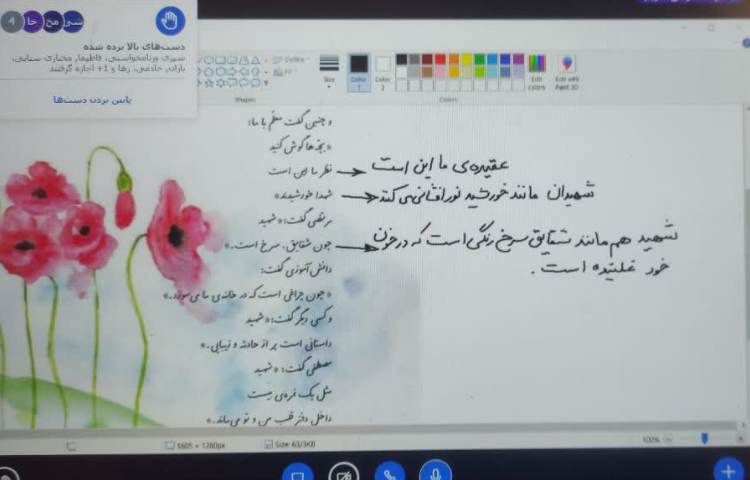 شی مخ خا 4
دست‌های بالا برده شده
شیری ورنامخواستی، فاطیما، مختاری سنایی،
باران، خادمی، زها و 1+ اجازه گرفتند
پایین بردن دست‌ها
Outline
Fill
Shapes
Size
Color 1
Color 2
Colors
Edit colors
Edit with Paint 3D
و چنین گفت معلم با ما:
« بچه‌ها گوش کنید
نظر ما این است
شهدا خورشیدند»
مرتضی گفت: « شهید
چون شقایق، سرخ است.»
دانش آموزی گفت:
« چون چراغی است که در خانه‌ی ما می‌سوزد.»
و کسی دیگر گفت: « شهید
داستانی است پر از حادثه و زیبایی.»
مصطفی گفت: « شهید
مثل یک نمره‌ی بیست
داخل دفتر قلب من و تو می‌ماند.»
عقیده‌ی ما این است
شهیدان مانند خورشید نورافشانی می‌کنند
شهید هم مانند شقایق سرخ رنگی است که در خون
خود غلتیده است.
1605 × 1280px
100%